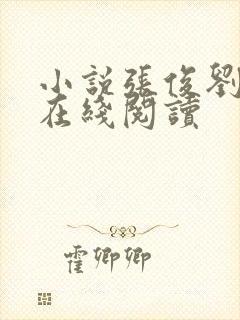 小說張俊劉
在綫閱讀
霍卿卿